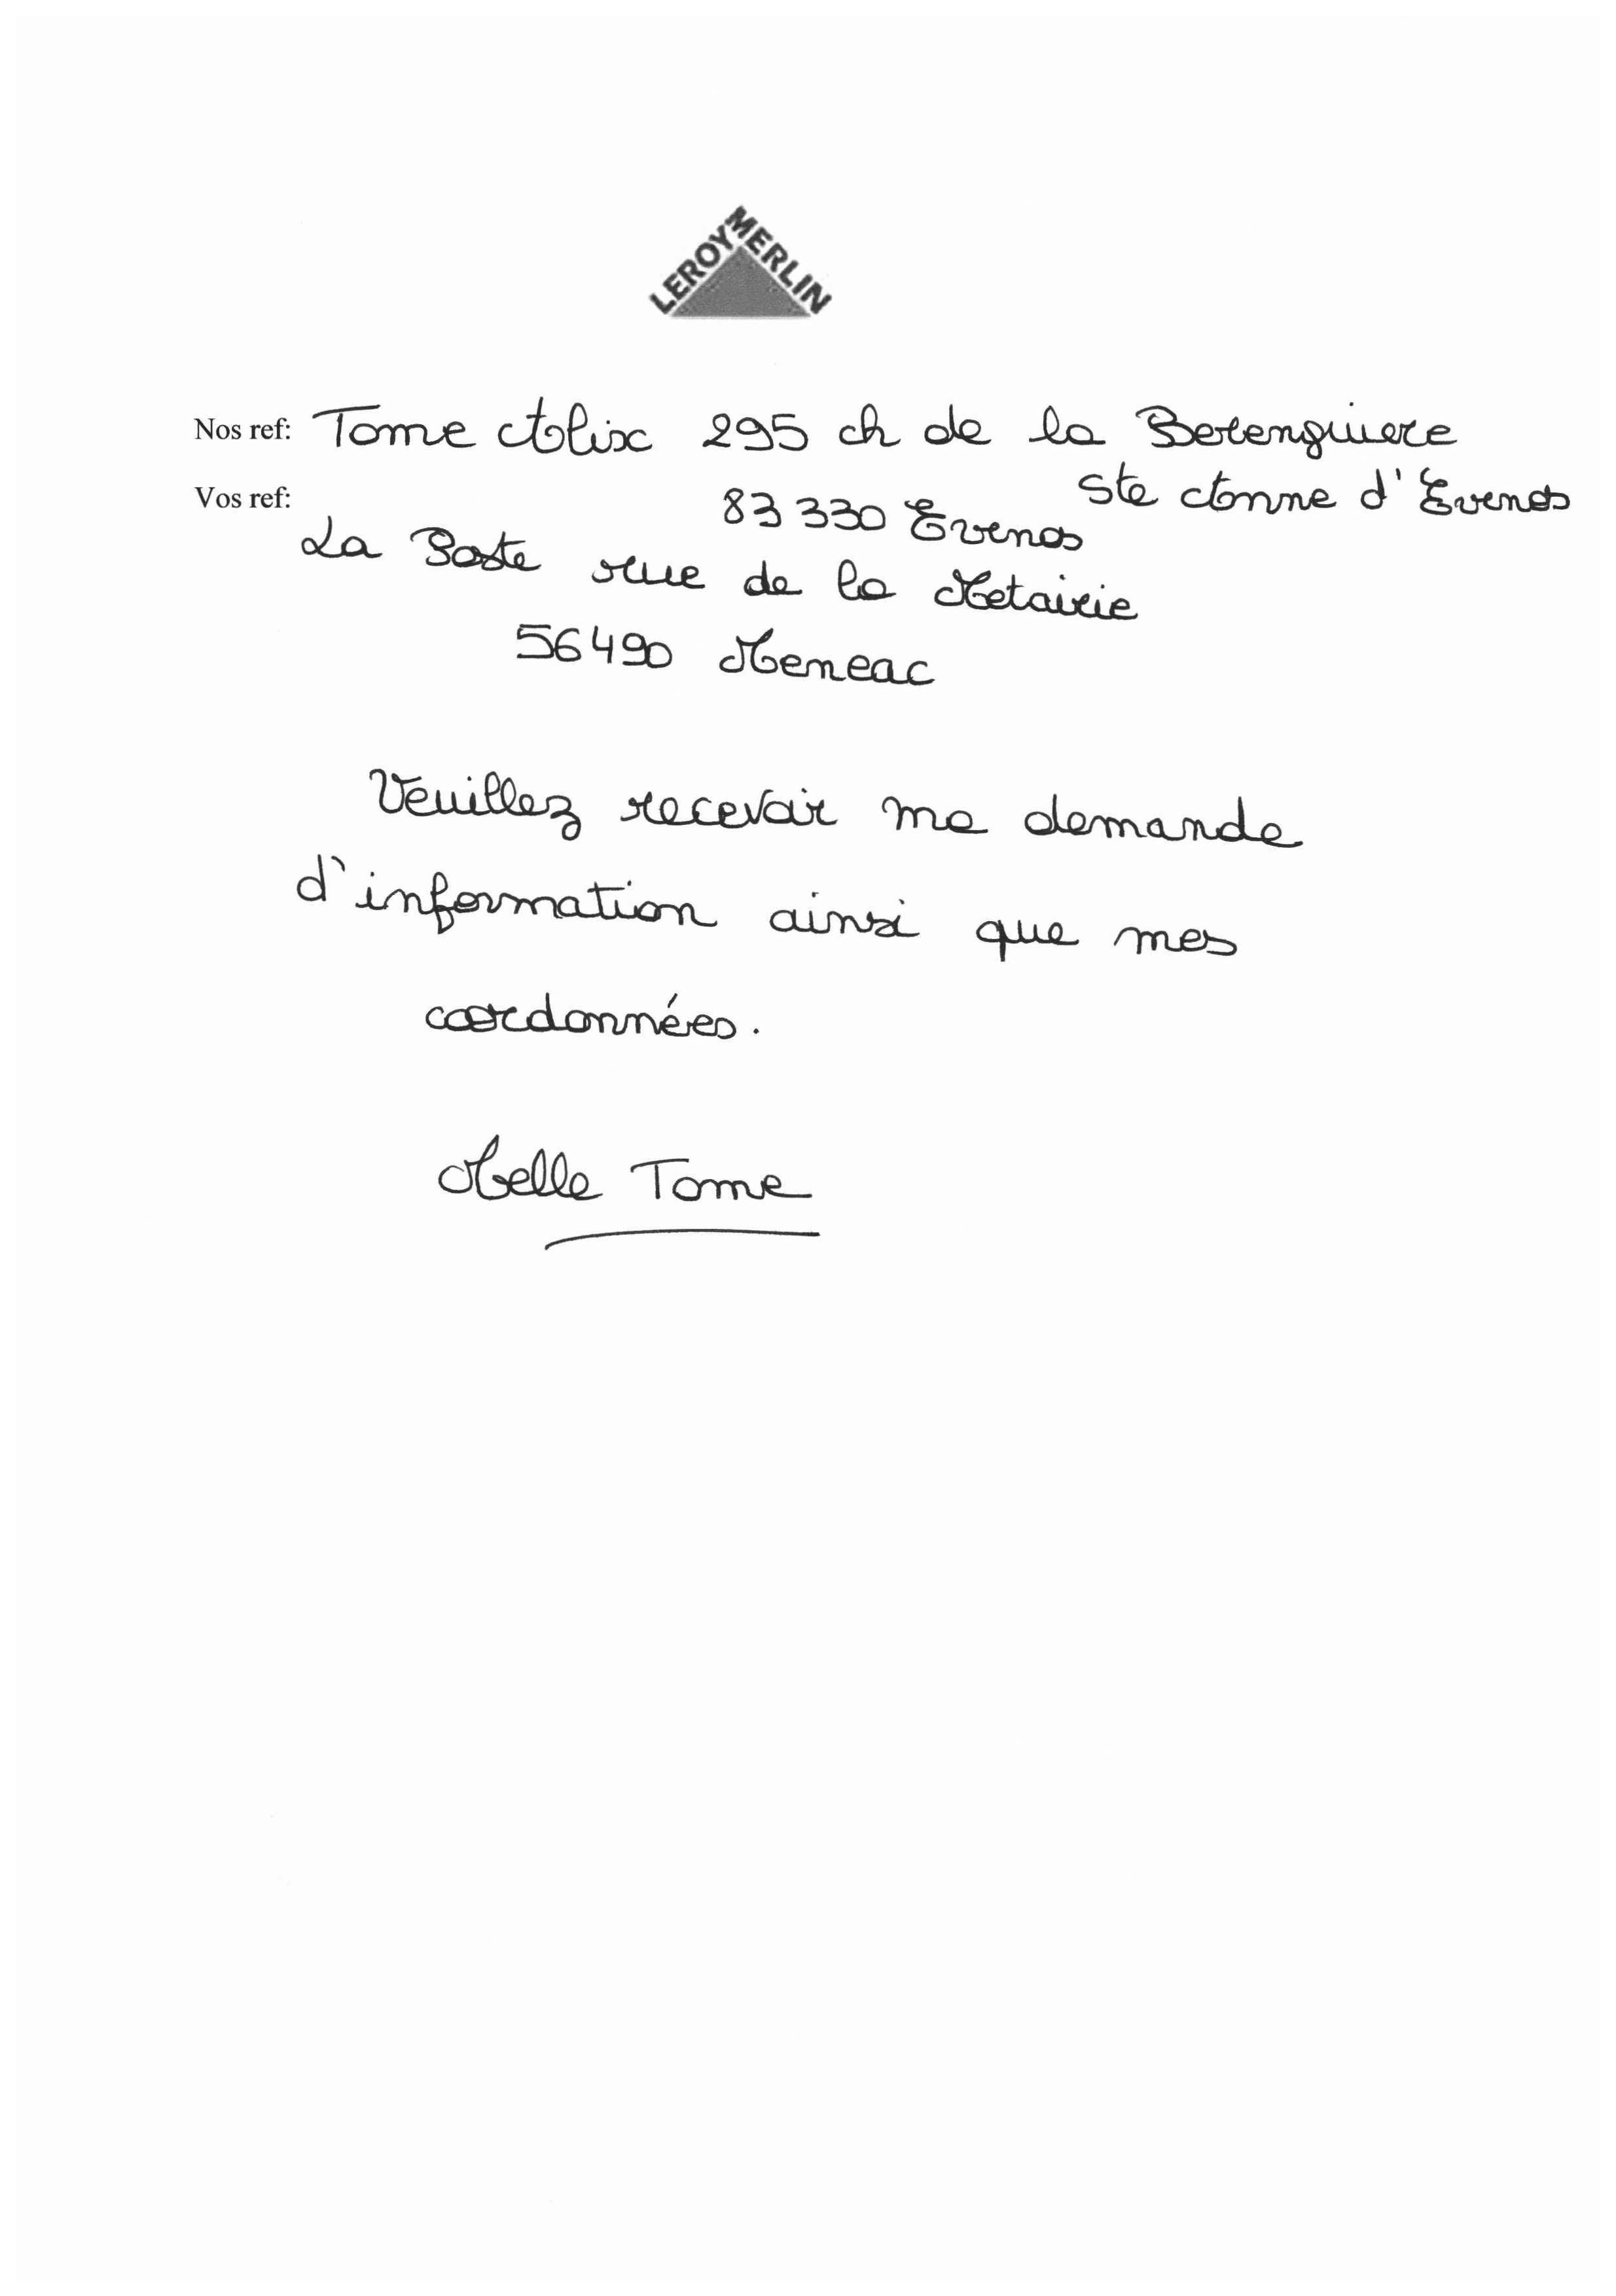 LEROY MERLIN
Nos ref: Tome Alix 295 ch de la Berenguiere
Ste Anne d'Evenos
Vos ref: 83 330 Evenos
La Poste rue de la Metairie
56490 Meneac
Veuillez recevoir ma demande
d'information ainsi que mes
coordonnées.
Melle Tome